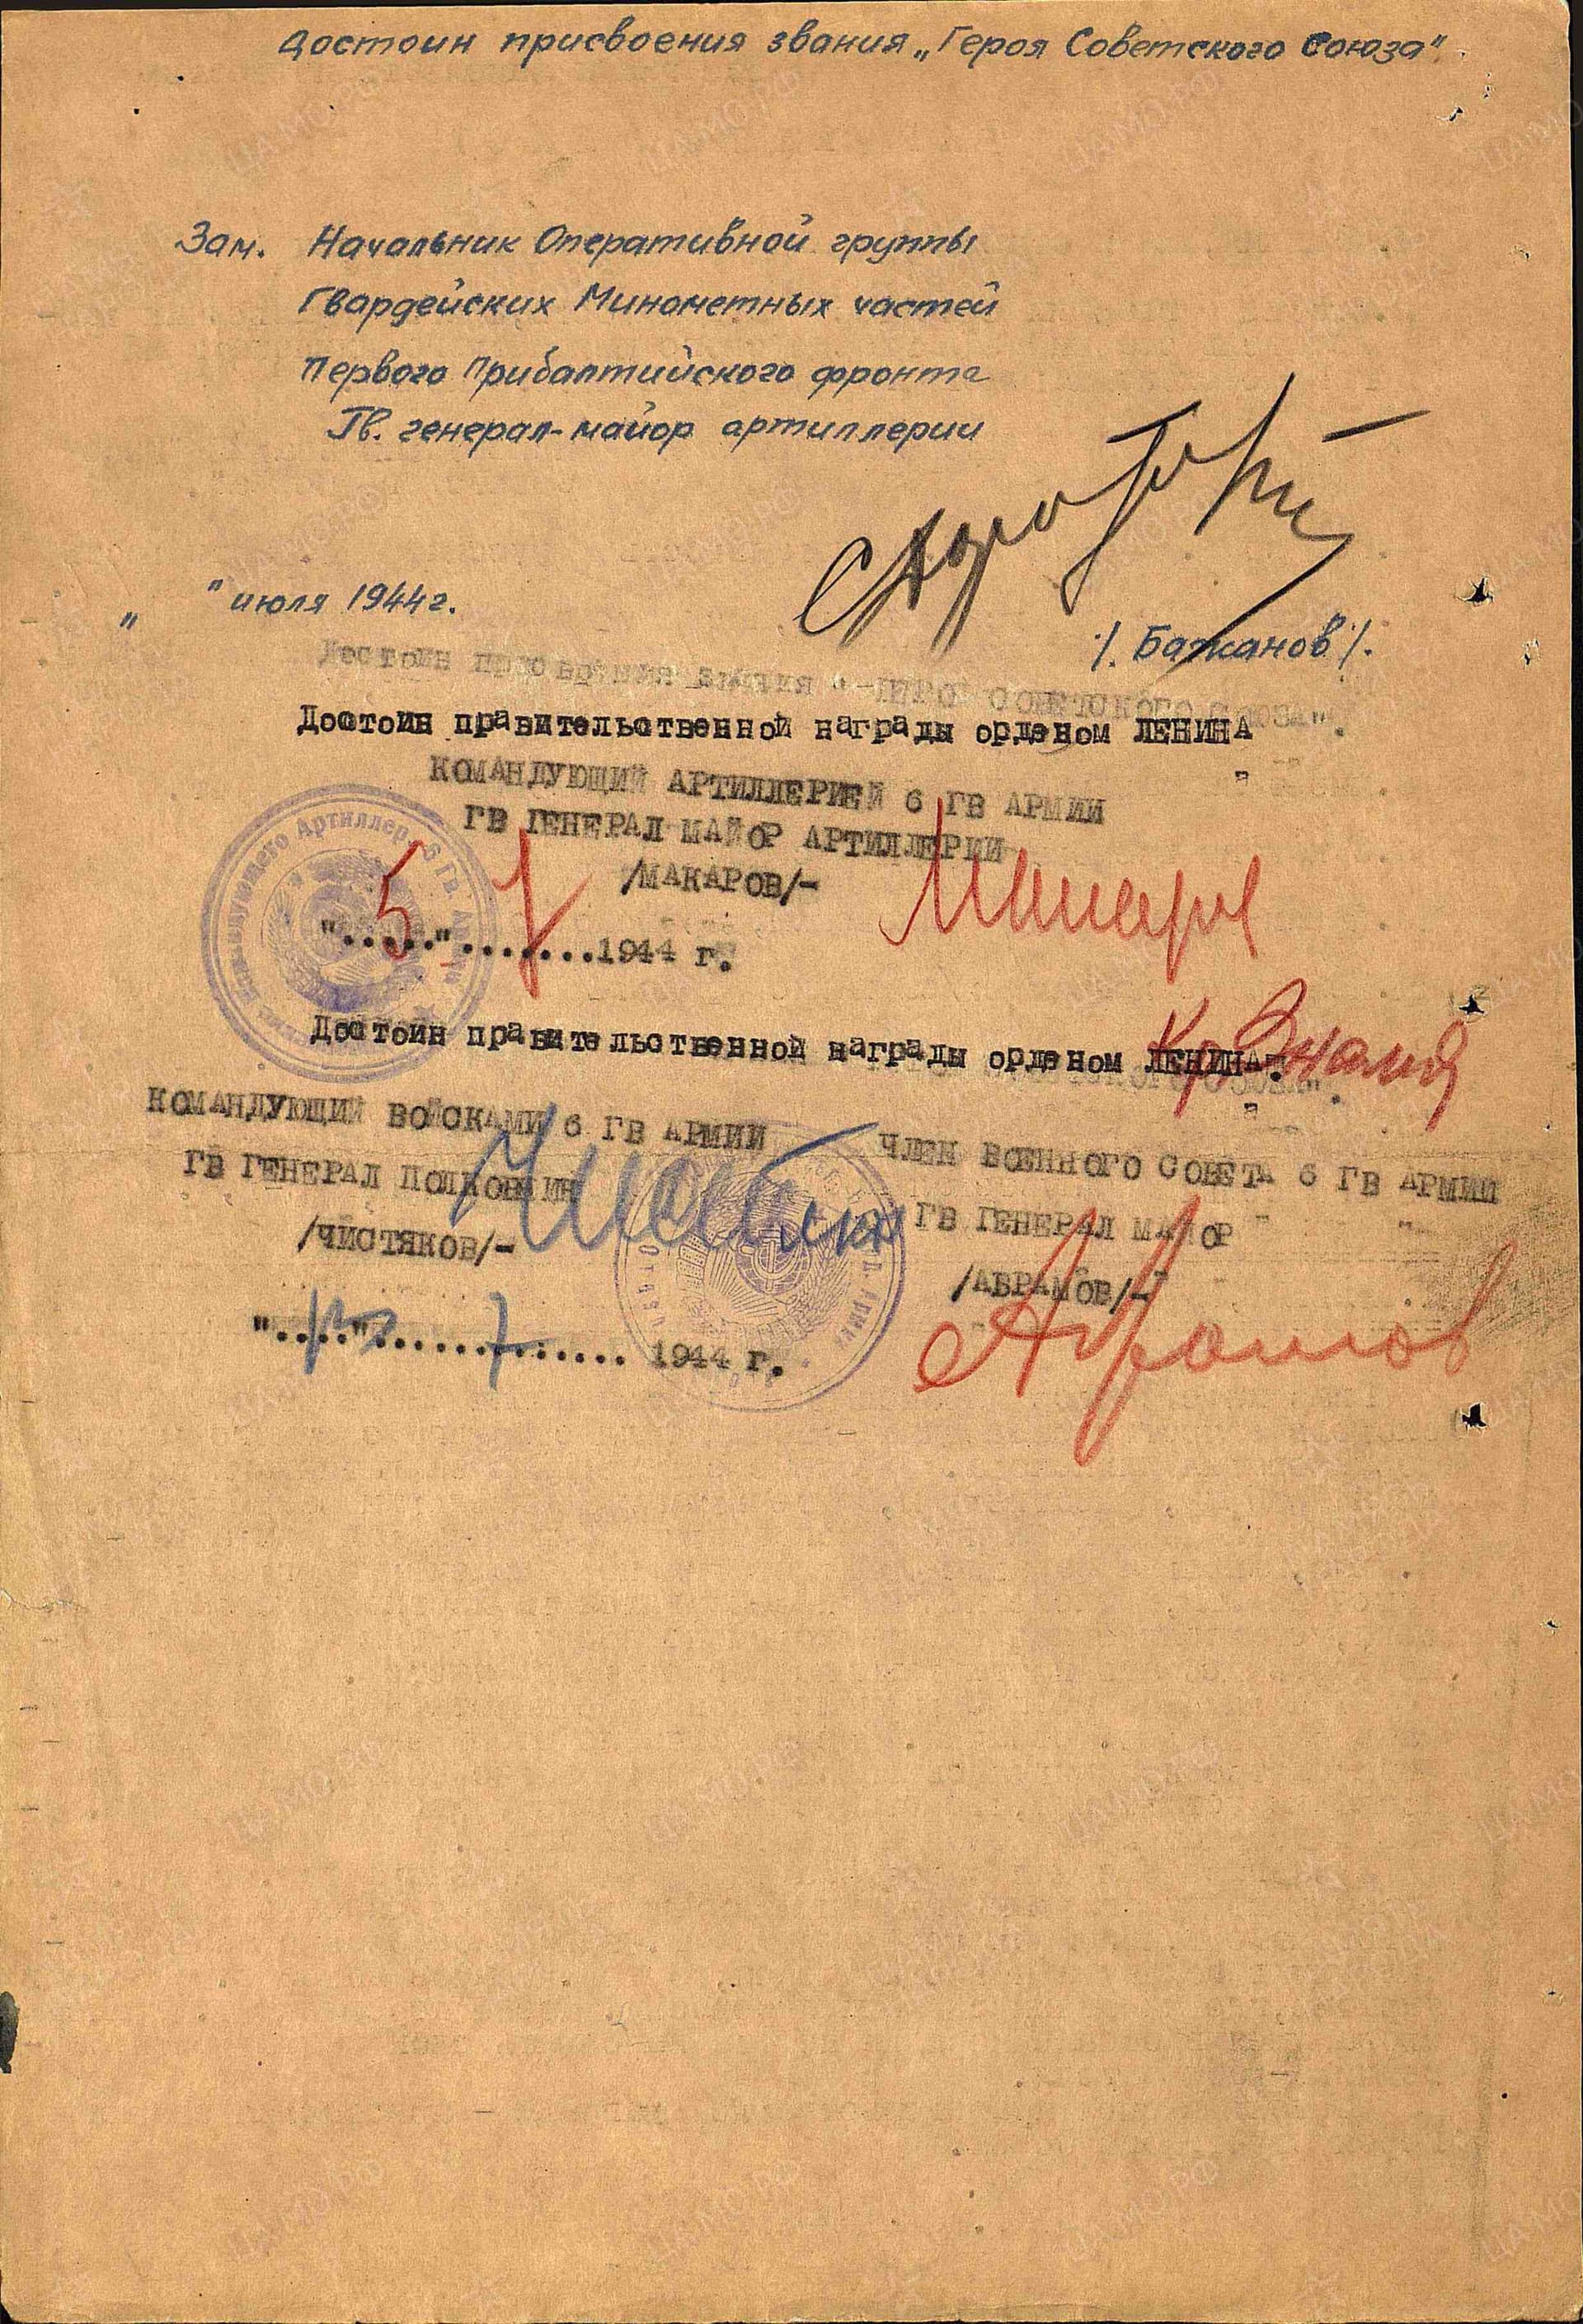 Достоин присвоения звания „Героя Советского Союза"
Зам. Начальник Оперативной группы
Гвардейских Минометных частей
Первого Прибалтийского фронта
Гв. генерал-майор артиллерии
"   " июля 1944г.
/. Бажанов /.
Достоин присвоения звания "СОВЕТСКОГО СОЮЗА".
Достоин правительственной награды орденом ЛЕНИНА
КОМАНДУЮЩИЙ АРТИЛЛЕРИЕЙ 6 ГВ АРМИИ
ГВ ГЕНЕРАЛ МАЙОР АРТИЛЛЕРИИ
/МАКАРОВ/- Макаров
"..5.." ...7....1944 г.
Достоин правительственной награды орденом ЛЕНИНА. Кр Знамя
КОМАНДУЮЩИЙ ВОЙСКАМИ 6 ГВ АРМИИ
ГВ ГЕНЕРАЛ ПОЛКОВНИК
/ЧИСТЯКОВ/-
"....".....7...... 1944 г.
ЧЛЕН ВОЕННОГО СОВЕТА 6 ГВ АРМИИ
ГВ ГЕНЕРАЛ МАЙОР
/АБРАМОВ/-
Абрамов